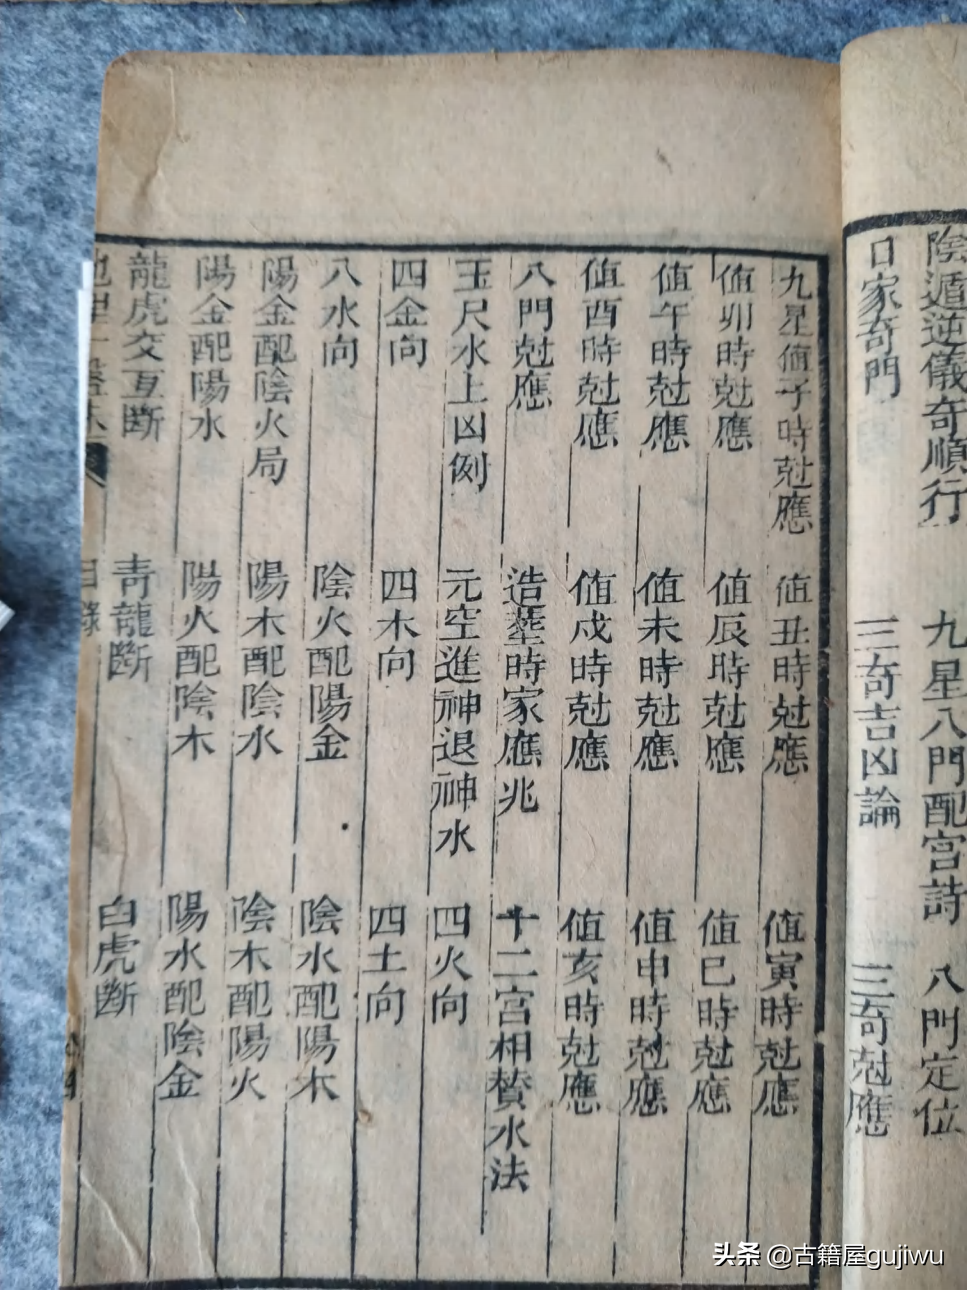 陰遁逆儀奇順行　九星八門配宮詩　八門定位
日家奇門　三奇吉凶論　三奇尅應
九星值子時尅應　值丑時尅應　值寅時尅應
值卯時尅應　值辰時尅應　值巳時尅應
值午時尅應　值未時尅應　值申時尅應
值酉時尅應　值戌時尅應　值亥時尅應
八門尅應　造塟時家應兆　十二宮相贊水法
玉尺水上凶例　元空進神退神水　四火向
四金向　四木向　四土向
八水向　陰火配陽金　陰水配陽木
陽金配陰火局　陽木配陰水　陰木配陽火
陽金配陽水　陽火配陰木　陽水配陰金
龍虎交互斷　青龍斷　白虎斷
目錄
头条 @古籍屋gujiwu